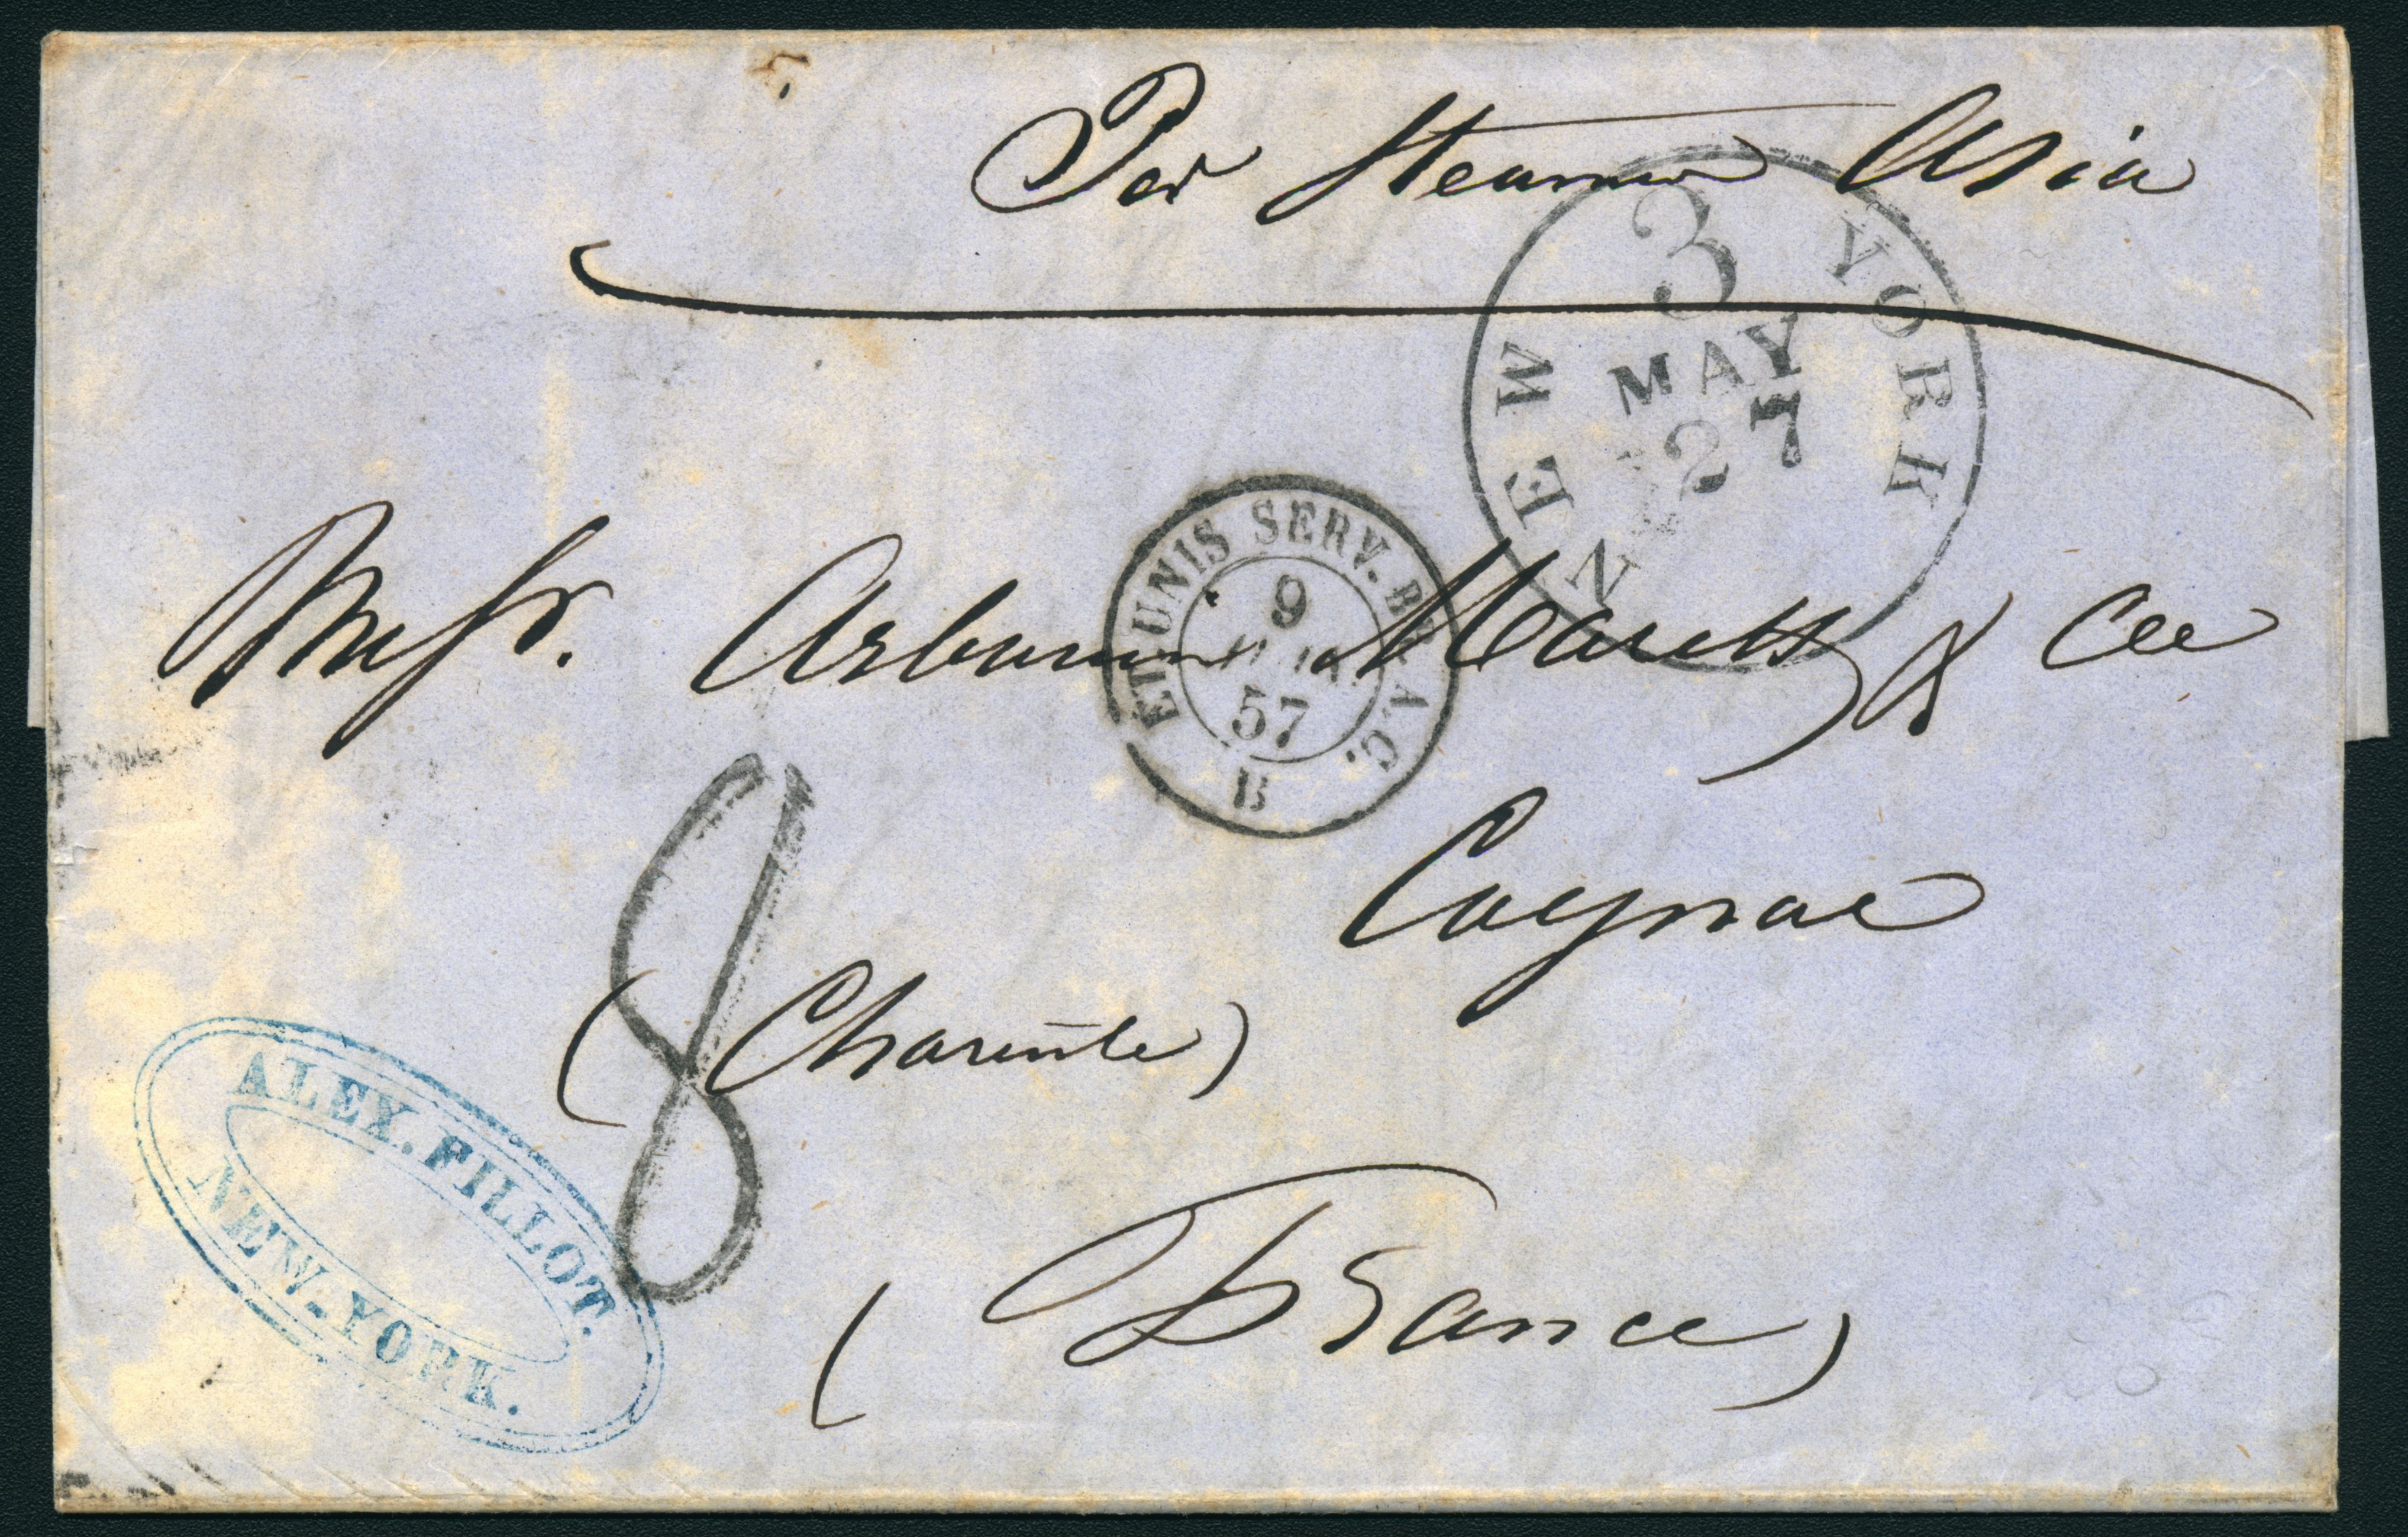 Per Steamer Asia
NEW YORK
3
MAY
27
ET.UNIS SERV. BR. A.C.
9
JUIN
57
B
Messr. Arbouin Maretts & Cie
Cognac
8
(Charente)
(France)
ALEX. FILLOT.
NEW-YORK.